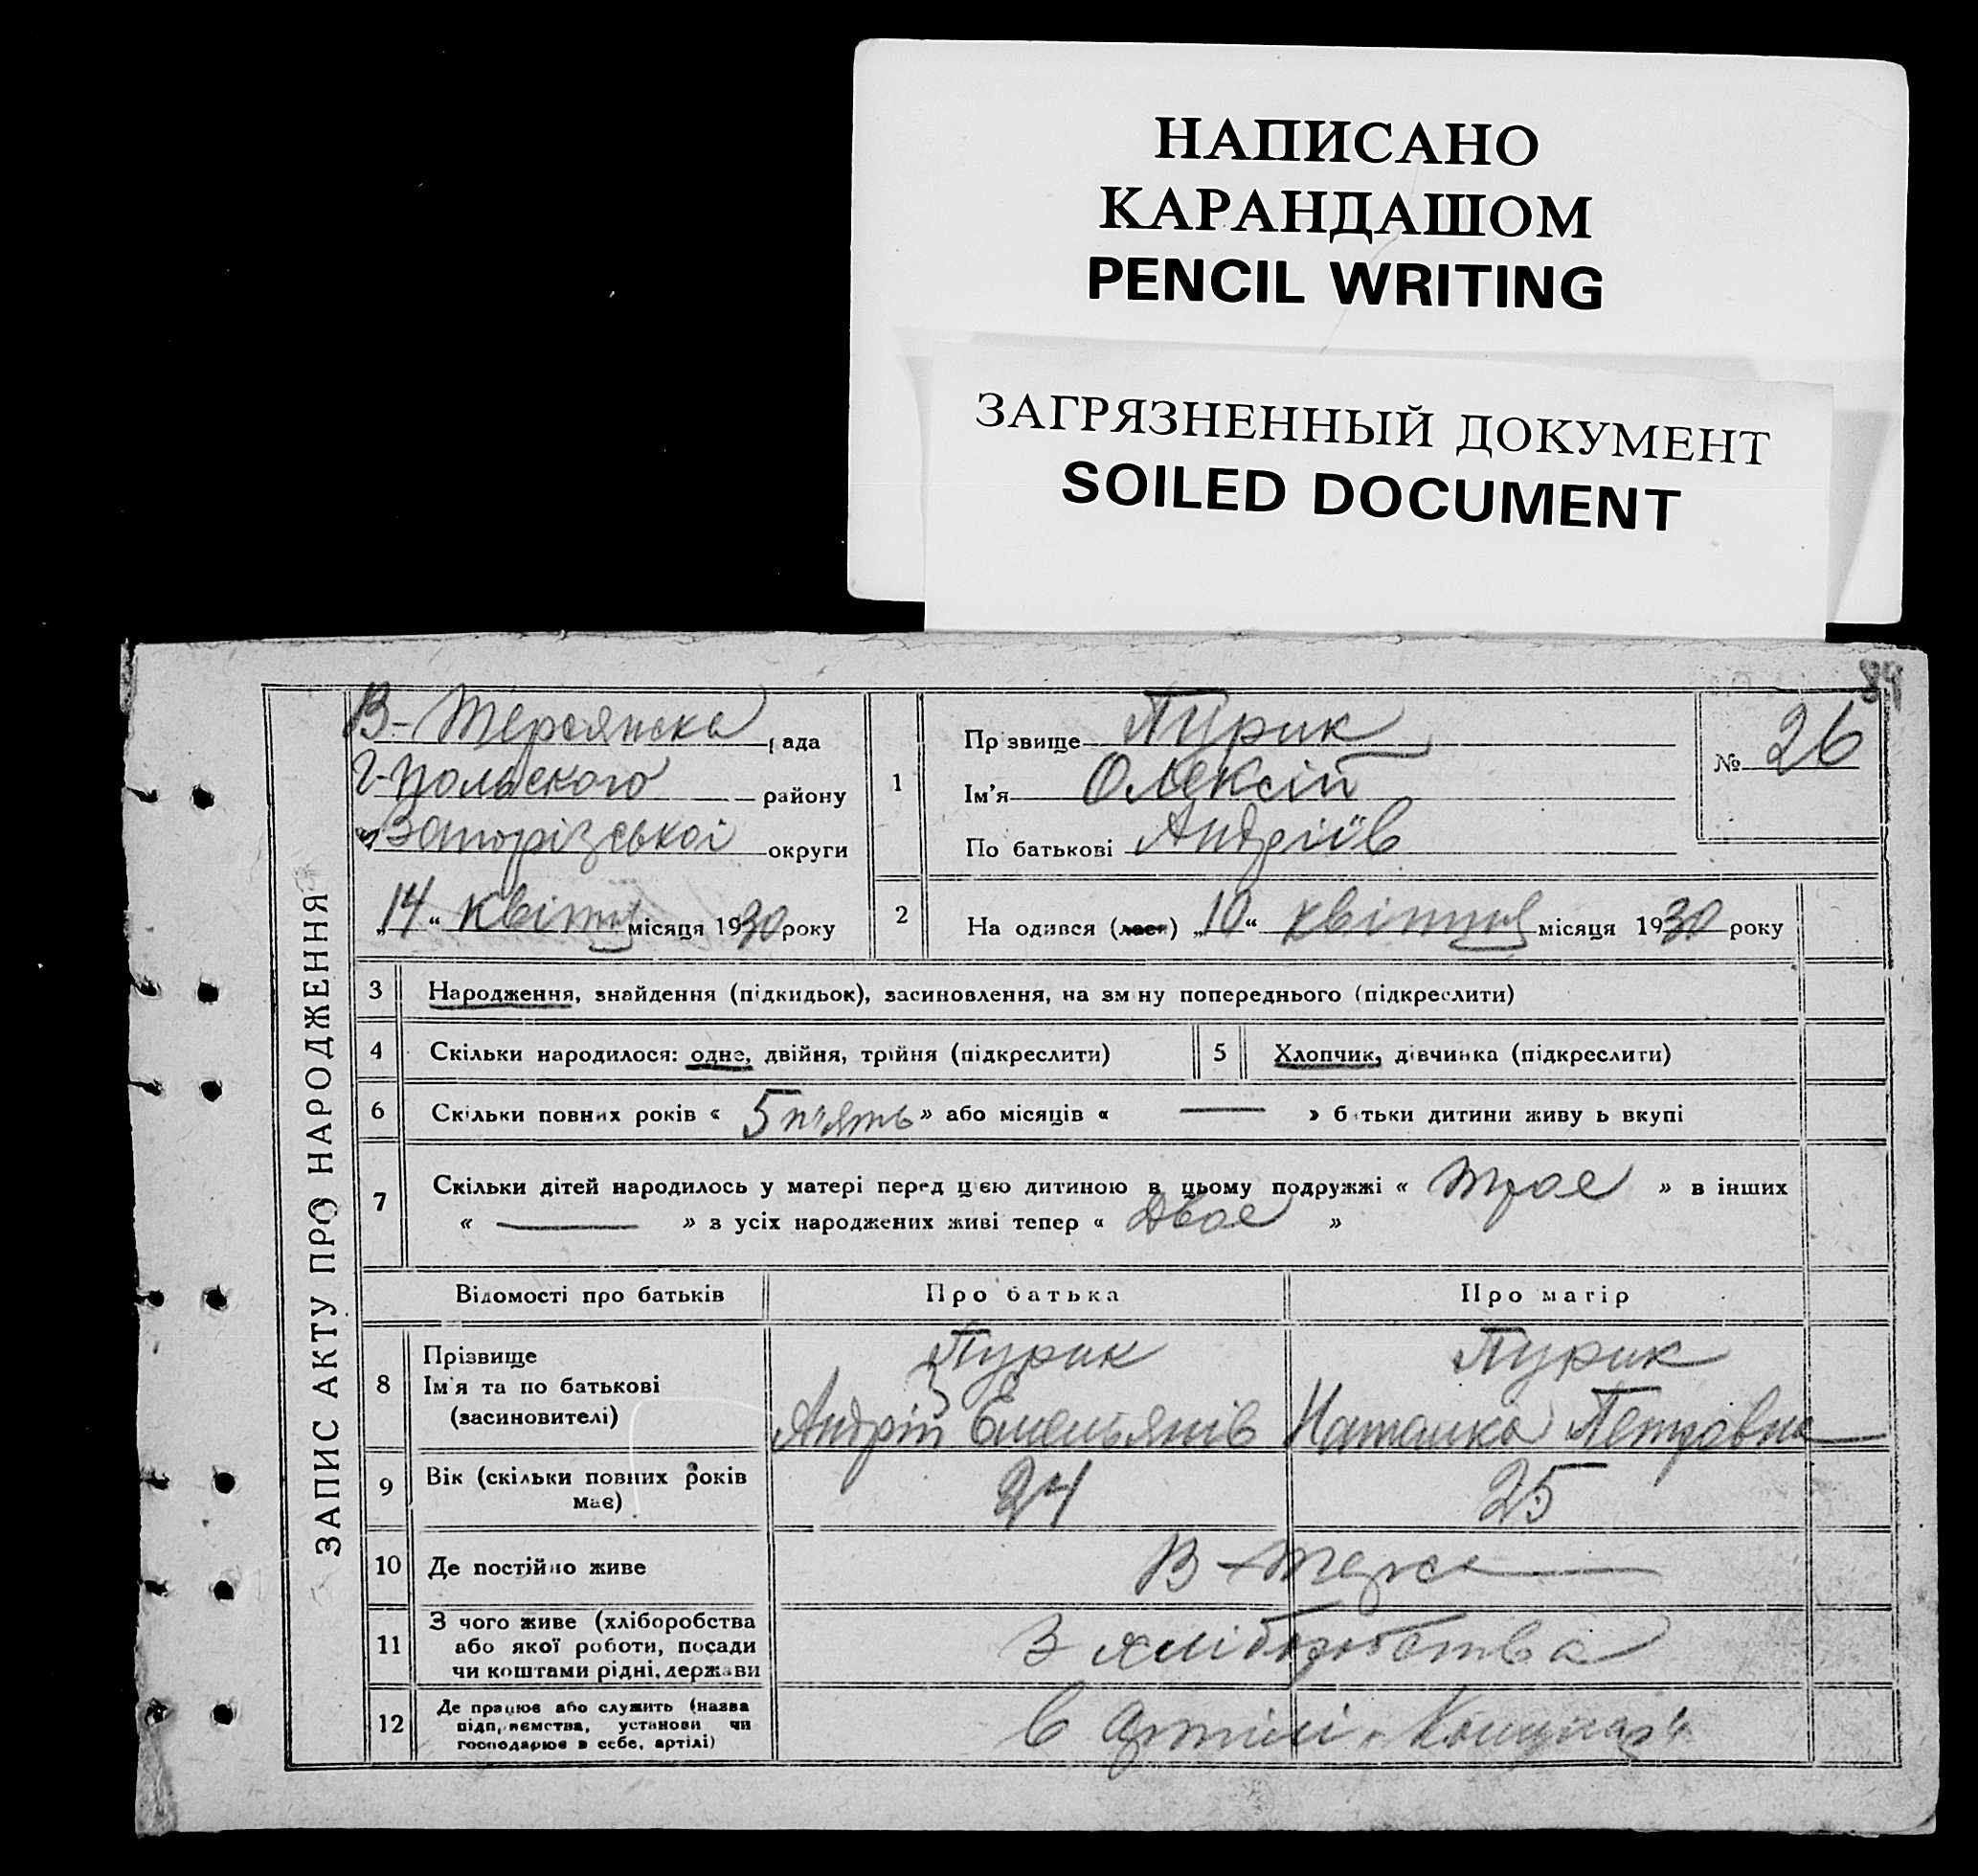 НАПИСАНО
КАРАНДАШОМ
PENCIL WRITING
ЗАГРЯЗНЕННЫЙ ДОКУМЕНТ
SOILED DOCUMENT
84
ЗАПИС АКТУ ПРО НАРОДЖЕННЯ
В-Терсянска рада
Г-польского району
Запорізської округи
„14“ квітня місяця 1930 року
1
Прізвище Пурик
Ім'я Олексій
По батькові Андріїв
№ 26
2 На одився (лася) „10“ квітня місяця 1930 року
3 Народження, знайдення (підкидьок), засиновлення, на зміну попереднього (підкреслити)
4 Скільки народилося: одне, двійня, трійня (підкреслити)
5 Хлопчик, дівчинка (підкреслити)
6 Скільки повних років « 5 п'ять » або місяців « — » батьки дитини живуть вкупі
7 Скільки дітей народилось у матері перед цією дитиною в цьому подружжі « троє » в інших
« — » з усіх народжених живі тепер « двоє »
Відомості про батьків Про батька Про матір
8 Прізвище Пурик Пурик
Ім'я та по батькові
(засиновителі) Андрій Емельянів Наталка Петровна
9 Вік (скільки повних років 24 25
має)
10 Де постійно живе В-Терса
11 З чого живе (хліборобства
або якої роботи, посади З хліборобства
чи коштами рідні, держави
12 Де працює або служить (назва
підприємства, установи чи в артілі
господарює в себе, артілі)